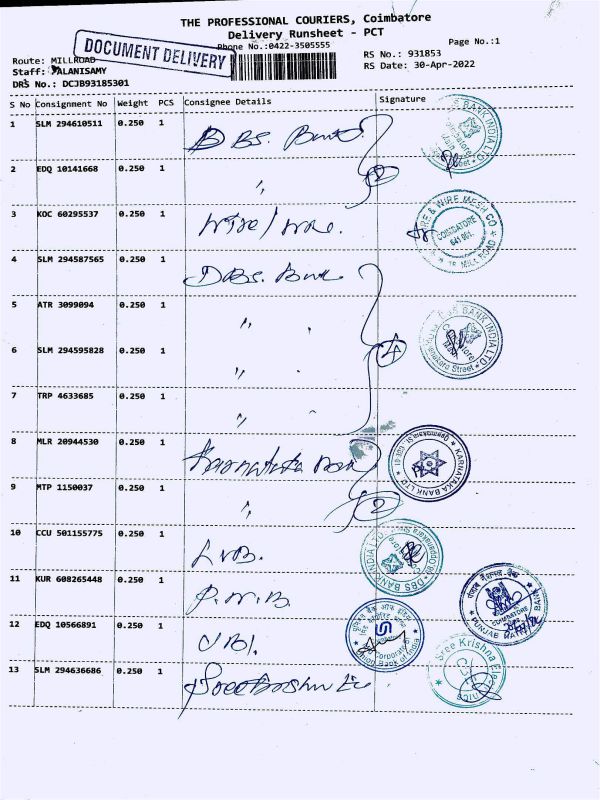 THE PROFESSIONAL COURIERS, Coimbatore
Delivery Runsheet - PCT
Phone No.:0422-3505555
Page No.:1
DOCUMENT DELIVERY
Route: MILLROAD
Staff: PALANISAMY
DRS No.: DCJB93185301
RS No.: 931853
RS Date: 30-Apr-2022
S No Consignment No Weight PCS Consignee Details Signature
1 SLM 294610511 0.250 1 DBS. Bank.
2 EDQ 10141668 0.250 1 " 2
3 KOC 60295537 0.250 1 Wire/wire.
4 SLM 294587565 0.250 1 DBS. Bank
5 ATR 3099094 0.250 1 "
6 SLM 294595828 0.250 1 " 4
7 TRP 4633685 0.250 1 "
8 MLR 20944530 0.250 1 Karnataka Ban
9 MTP 1150037 0.250 1 " 2
10 CCU 501155775 0.250 1 LVB.
11 KUR 608265448 0.250 1 P.N.B.
12 EDQ 10566891 0.250 1 UBI.
13 SLM 294636686 0.250 1
DBS BANK INDIA LTD.
Coimbatore
WIRE & WIRE MESH CO
COIMBATORE
641 001.
MILL ROAD
DBS BANK INDIA LTD.
Street
KARNATAKA BANK LTD
DBS BANK INDIA LTD
पंजाब नैशनल बैंक
COIMBATORE
PUNJAB NATIONAL BANK
Union Bank of India
Sree Krishna Electronics